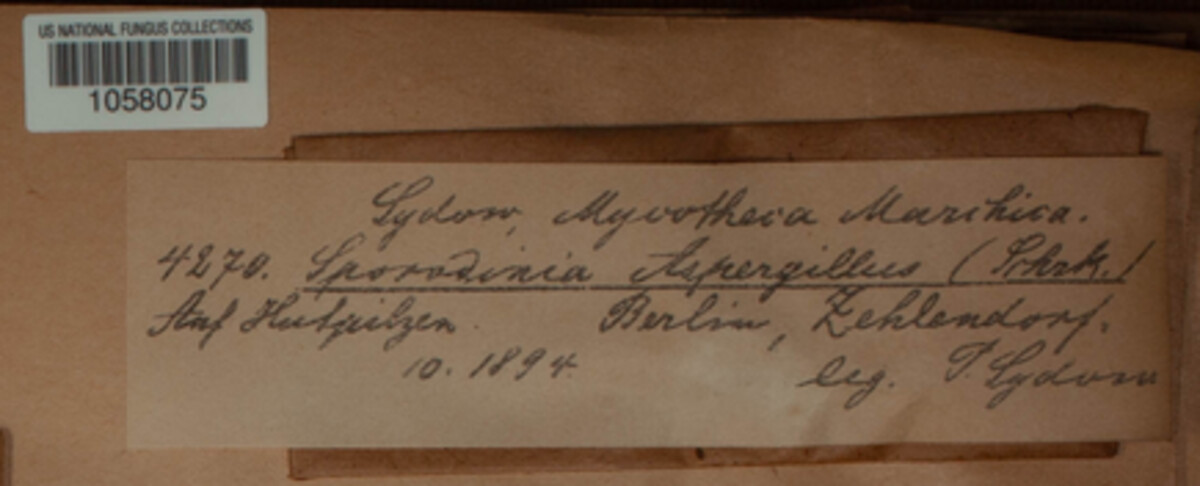 US NATIONAL FUNGUS COLLECTIONS
1058075
Sydow, Mycotheca Marchica.
4270. Sporodinia Aspergillus (Schrk.)
Auf Hutpilzen. Berlin, Zehlendorf.
10. 1894. leg. P. Sydow